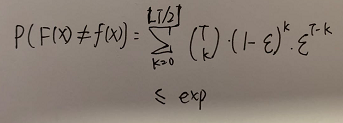 P(F(x) ≠ f(x)) = ∑_{k=0}^{⌊T/2⌋} (T k) · (1 - ε)^k · ε^{T-k}
≤ exp